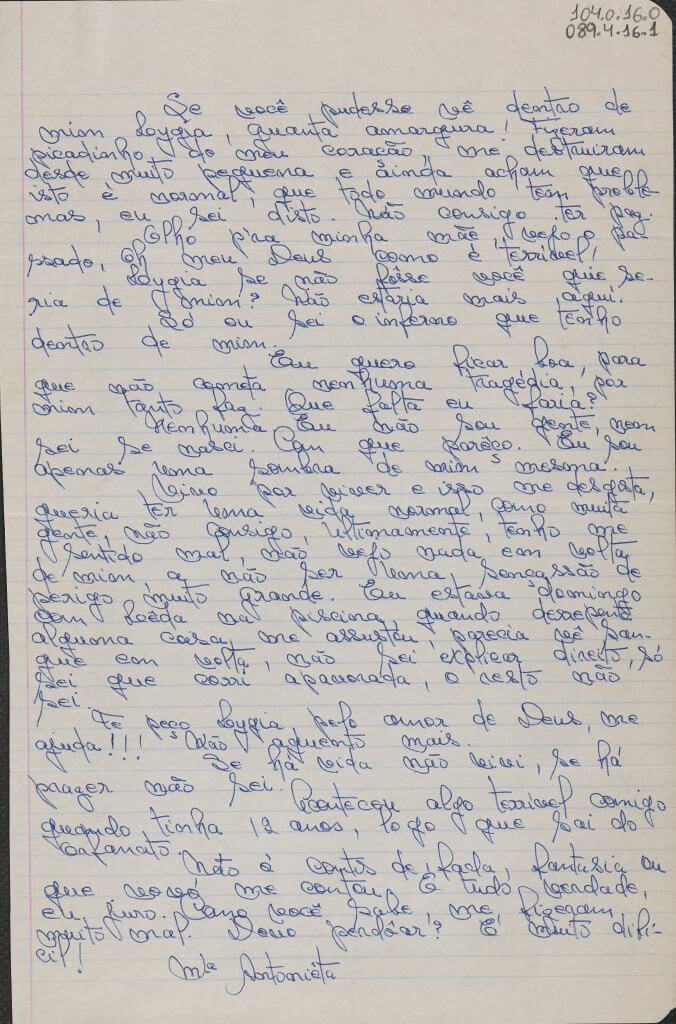 104.0.16.0
089.4.16.1
Se você pudesse vê dentro de
mim Lygia, quanta amargura! Fizeram
picadinho do meu coração, me destruiram
desde muito pequena e ainda acham que
isto é normal, que todo mundo tem proble-
mas, eu sei disto. Não consigo ter paz.
Olho p'ra minha mãe, vejo o pa-
ssado, oh meu Deus como é terrivel!
Lygia se não fôsse você que se-
ria de mim? Não estaria mais aqui.
Só eu sei o inferno que tenho
dentro de mim.
Eu quero ficar boa, para
que não cometa nenhuma tragédia, por
mim tanto faz. Que falta eu faria?
Nenhuma Eu não sou gente, nem
sei se nasci. Com que pareço. Eu sou
apenas uma sombra de mim mesma.
Vivo por viver e isso me desgosta,
queria ter uma vida normal, como muita
gente, não consigo, ultimamente, tenho me
sentido mal, não vejo nada em volta
de mim, a não ser uma sensassão de
perigo muito grande. Eu estava domingo
com na piscina, quando desepente
alguma coisa me assustou, parecia vê san-
gue em volta, não sei explicar direito, só
sei que corri apavorada, o resto não
sei.
Te peço Lygia pelo amor de Deus, me
ajuda!!! Não aguento mais.
Se há vida não vivi, se há
prazer não sei.
Aconteceu algo terrivel comigo
quando tinha 12 anos, logo que sai do
orfanato.
Não é contos de fada, fantasia ou
que vovó me contou. É tudo verdade,
eu juro. Como você sabe, me fizeram
muito mal. Devo perdoar? É muito difi-
cil!
Mª Antoniêta